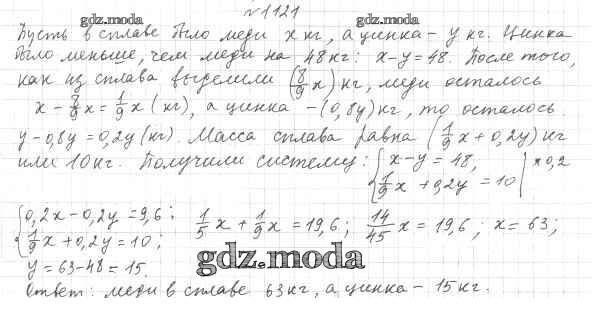 №1121
gdz.moda
Пусть в сплаве было меди x кг, а цинка - y кг. Цинка
было меньше, чем меди на 48 кг: x-y=48. После того,
как из сплава выделили (8/9 x) кг, меди осталось
x - 8/9 x = 1/9 x (кг), а цинка - (0,8y) кг, то осталось
y-0,8y=0,2y (кг). Масса сплава равна (1/9 x + 0,2y) кг
или 10 кг. Получили систему: { x-y=48, | *0,2
1/9 x + 0,2y = 10
{ 0,2x-0,2y=9,6; 1/5 x + 1/9 x = 19,6; 14/45 x = 19,6; x=63;
1/9 x + 0,2y = 10;
y = 63-48 = 15.
gdz.moda
Ответ: меди в сплаве 63 кг, а цинка - 15 кг.